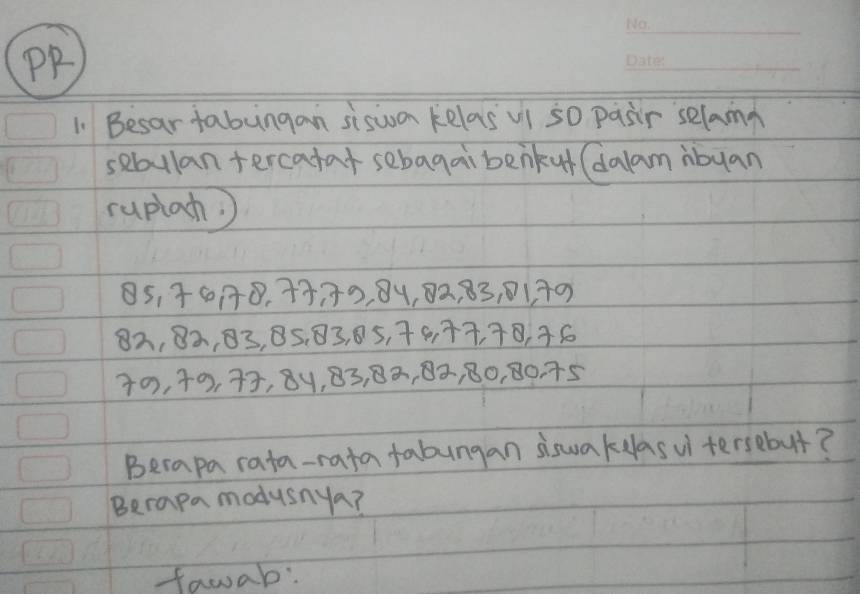 No.
Date:
PR
1. Besar tabungan siswa kelas VI SD pasir selama
sebulan tercatat sebagai berikut (dalam ribuan
rupiah.)
85, 76, 78, 77, 79, 84, 82, 83, 81, 79
82, 82, 83, 85, 83, 85, 76, 77, 78, 76
79, 79, 77, 84, 83, 82, 82, 80, 80, 75
Berapa rata-rata tabungan siswa kelas vi tersebut?
Berapa modusnya?
Jawab: